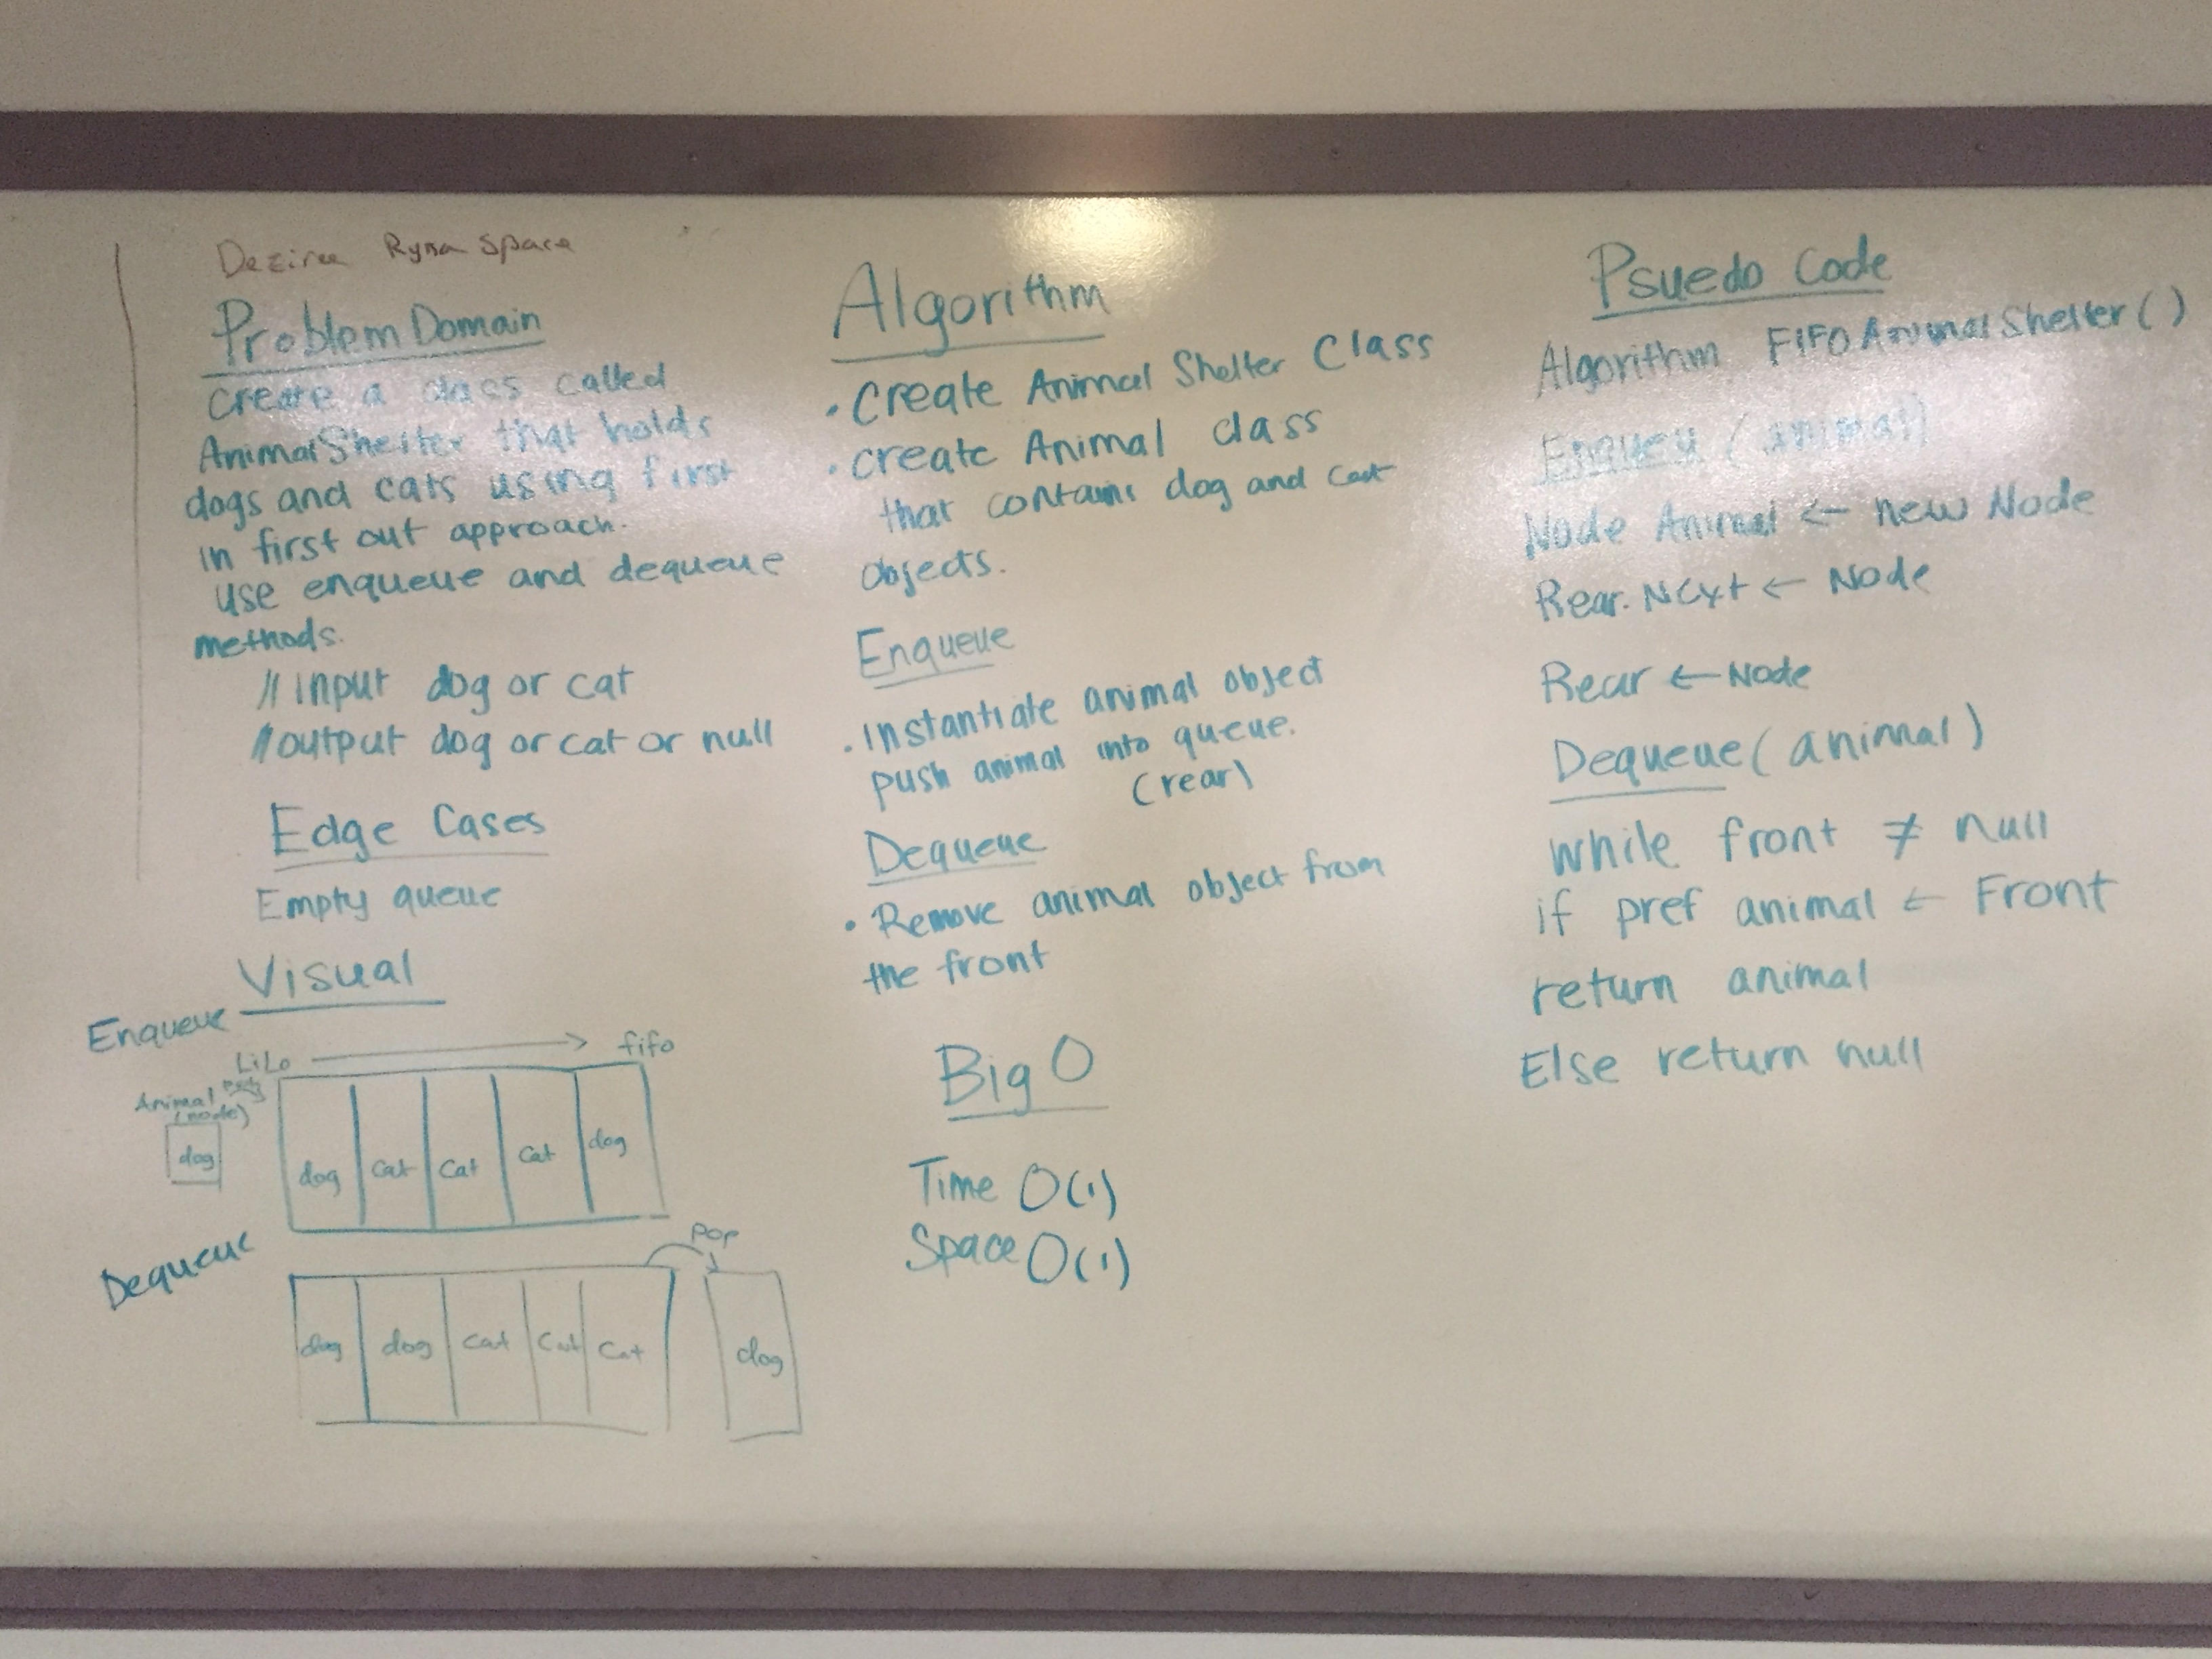 Deziree Ryna Space
Problem Domain
Create a class called
AnimalShelter that holds
dogs and cats using first
in first out approach.
use enqueue and dequeue
methods.
// input dog or cat
// output dog or cat or null
Edge Cases
Empty queue
Visual
Enqueue
LiLo → fifo
Animal
(node)
dog
dog cat cat cat dog
Dequeue
pop
dog dog cat cat cat dog
Algorithm
• Create Animal Shelter Class
• create Animal class
that contains dog and cat
objects.
Enqueue
• Instantiate animal object
push animal into queue.
(rear)
Dequeue
• Remove animal object from
the front
Big O
Time O(1)
Space O(1)
Psuedo Code
Algorithm FIFOAnimalShelter()
Enqueu (animal)
Node Animal ← new Node
Rear. Next ← Node
Rear ← Node
Dequeue(animal)
while front ≠ null
if pref animal ← Front
return animal
Else return null